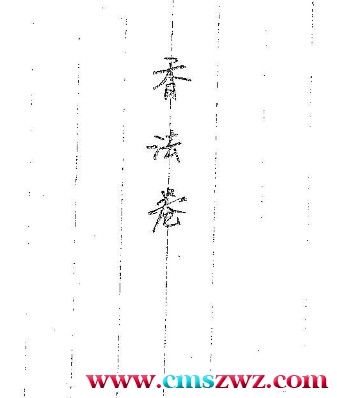 法卷
www.cmszwz.com